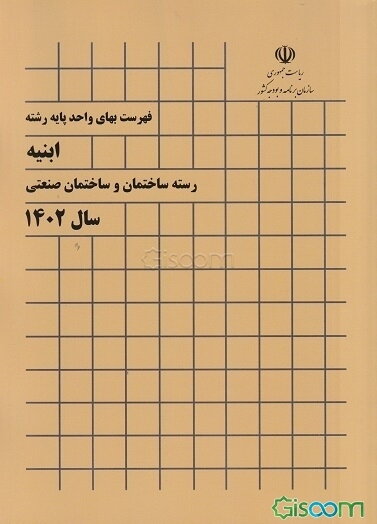 ریاست جمهوری
سازمان برنامه و بودجه کشور
فهرست بهای واحد پایه رشته
ابنیه
رسته ساختمان و ساختمان صنعتی
سال ۱۴۰۲
Gisoom
Gisoom